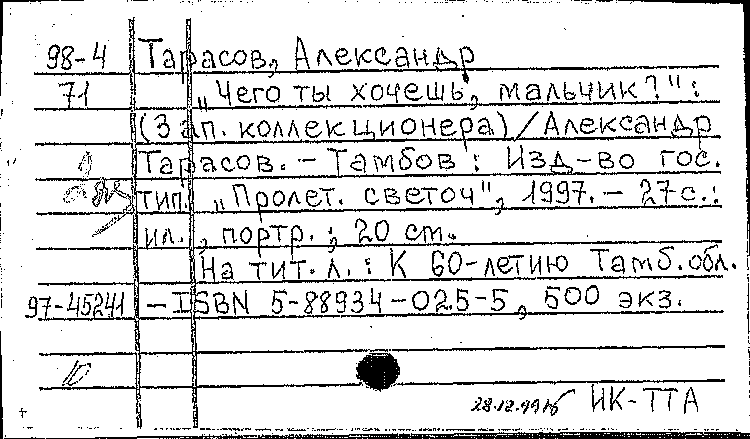 98-4 Тарасов, Александр
71 „Чего ты хочешь, мальчик?":
(Зап. коллекционера)/Александр
Тарасов. – Тамбов : Изд-во гос.
тип. „Пролет. светоч", 1997. – 27 с.:
ил., портр.; 20 см.
На тит. л.: К 60-летию Тамб. обл.
97-45241 – ISBN 5-88934-025-5, 500 экз.
10
28.12.99 ИК-ТТА